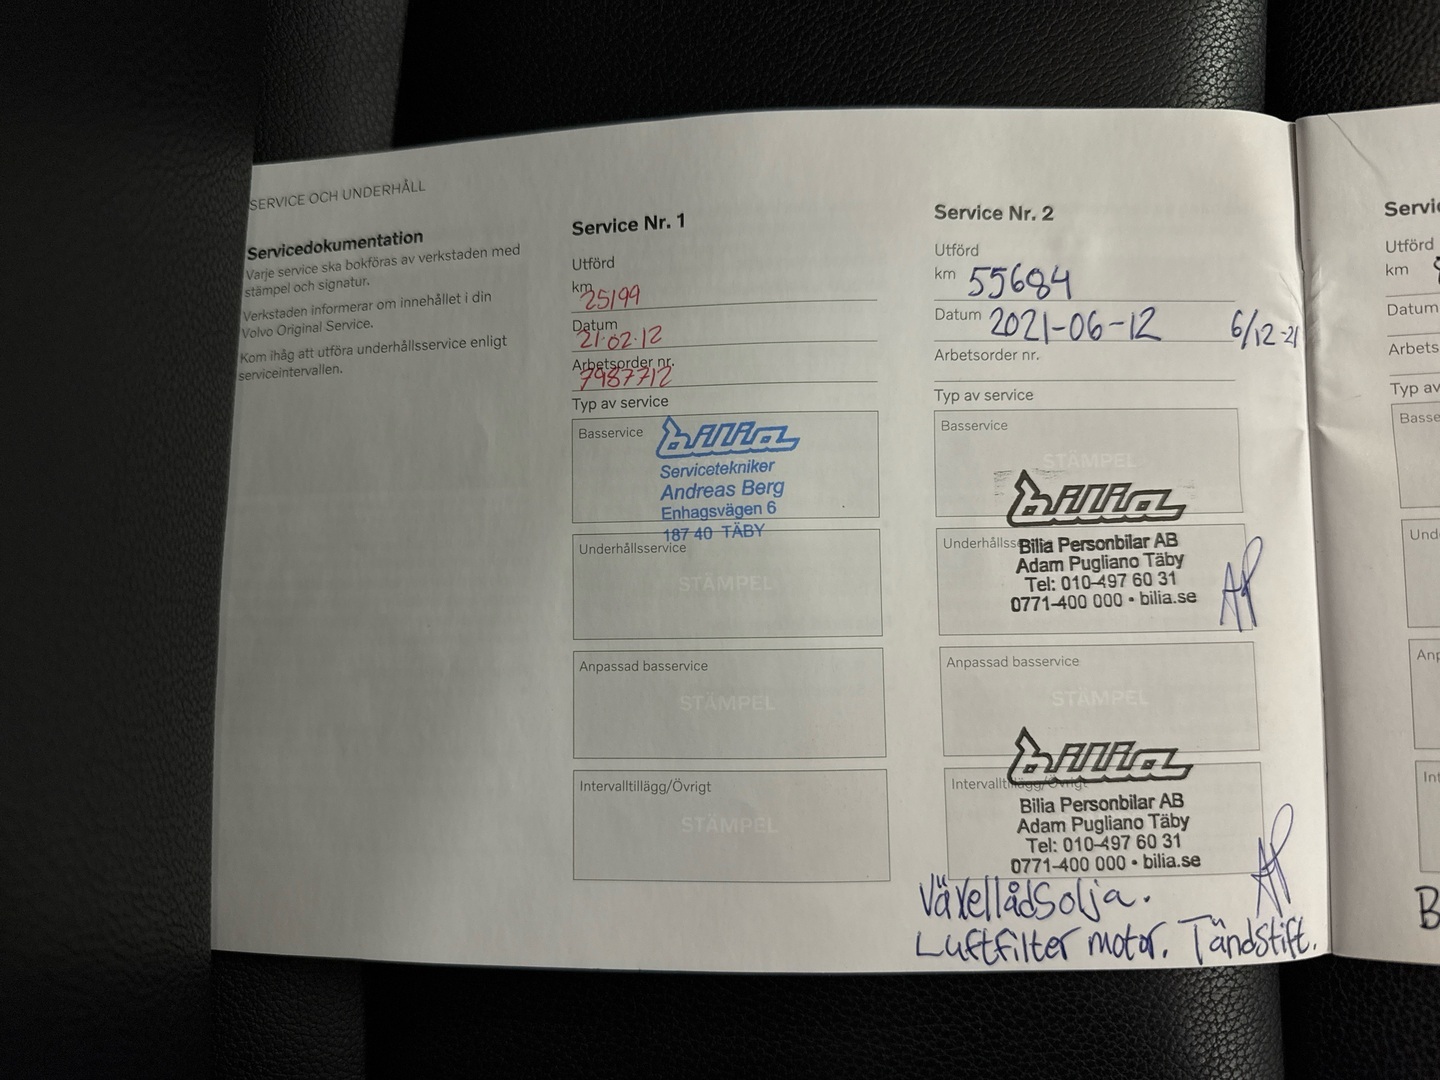 SERVICE OCH UNDERHÅLL
Servicedokumentation
Varje service ska bokföras av verkstaden med
stämpel och signatur.
Verkstaden informerar om innehållet i din
Volvo Original Service.
Kom ihåg att utföra underhållsservice enligt
serviceintervallen.
Service Nr. 1
Utförd
km 25199
Datum 21.02.12
Arbetsorder nr. 7987712
Typ av service
Basservice
bilia
Servicetekniker
Andreas Berg
Enhagsvägen 6
187 40 TÄBY
Underhållsservice
STÄMPEL
Anpassad basservice
STÄMPEL
Intervalltillägg/Övrigt
STÄMPEL
Service Nr. 2
Utförd
km 55684
Datum 2021-06-12 6/12-21
Arbetsorder nr.
Typ av service
Basservice
STÄMPEL
bilia
Underhållsse
Bilia Personbilar AB
Adam Pugliano Täby
Tel: 010-497 60 31
0771-400 000 • bilia.se
AP
Anpassad basservice
STÄMPEL
bilia
Intervalltillägg/Övrigt
Bilia Personbilar AB
Adam Pugliano Täby
Tel: 010-497 60 31
0771-400 000 • bilia.se
AP
Växellådsolja.
Luftfilter motor. Tändstift.
Servi
Utförd
km
Datum
Arbets
Typ av
Basse
Und
Anp
Int
B